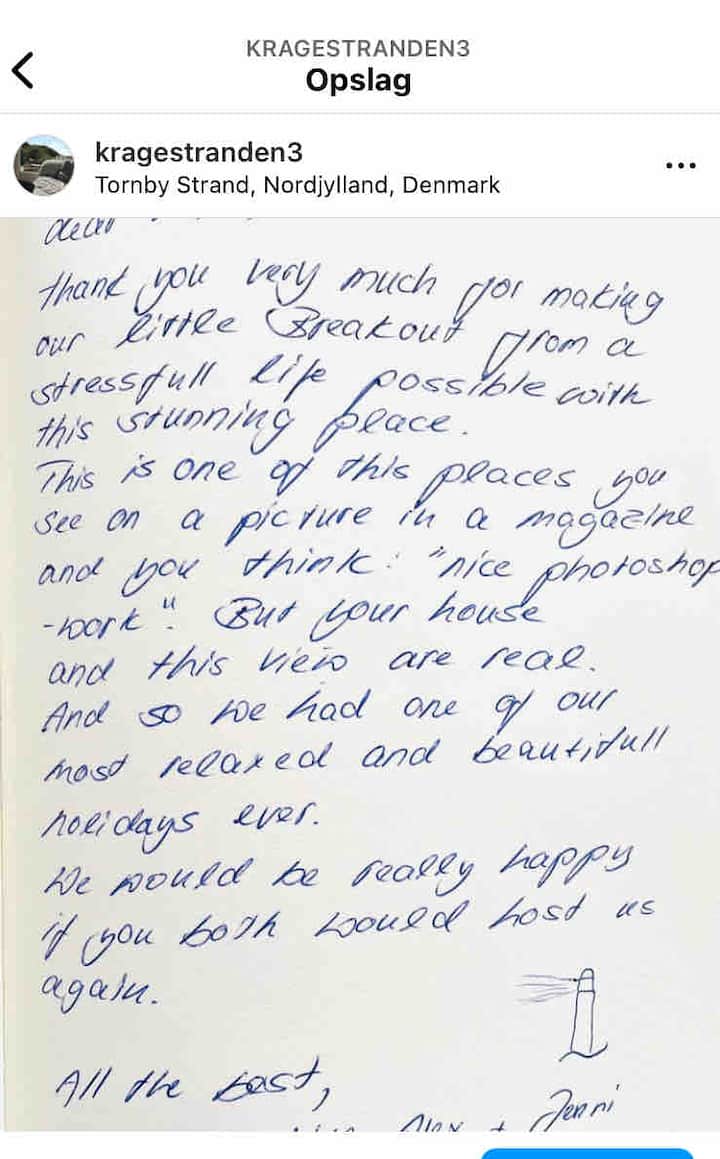 KRAGESTRANDEN3
Opslag
kragestranden3
Tornby Strand, Nordjylland, Denmark
dear
thank you very much for making
our little Breakout from a
stressfull life possible with
this stunning place.
This is one of this places you
see on a picture in a magazine
and you think: "nice photoshop
-work". But your house
and this view are real.
And so we had one of our
most relaxed and beautifull
holidays ever.
We would be really happy
if you both would host us
again.
All the best,
Alex + Jenni